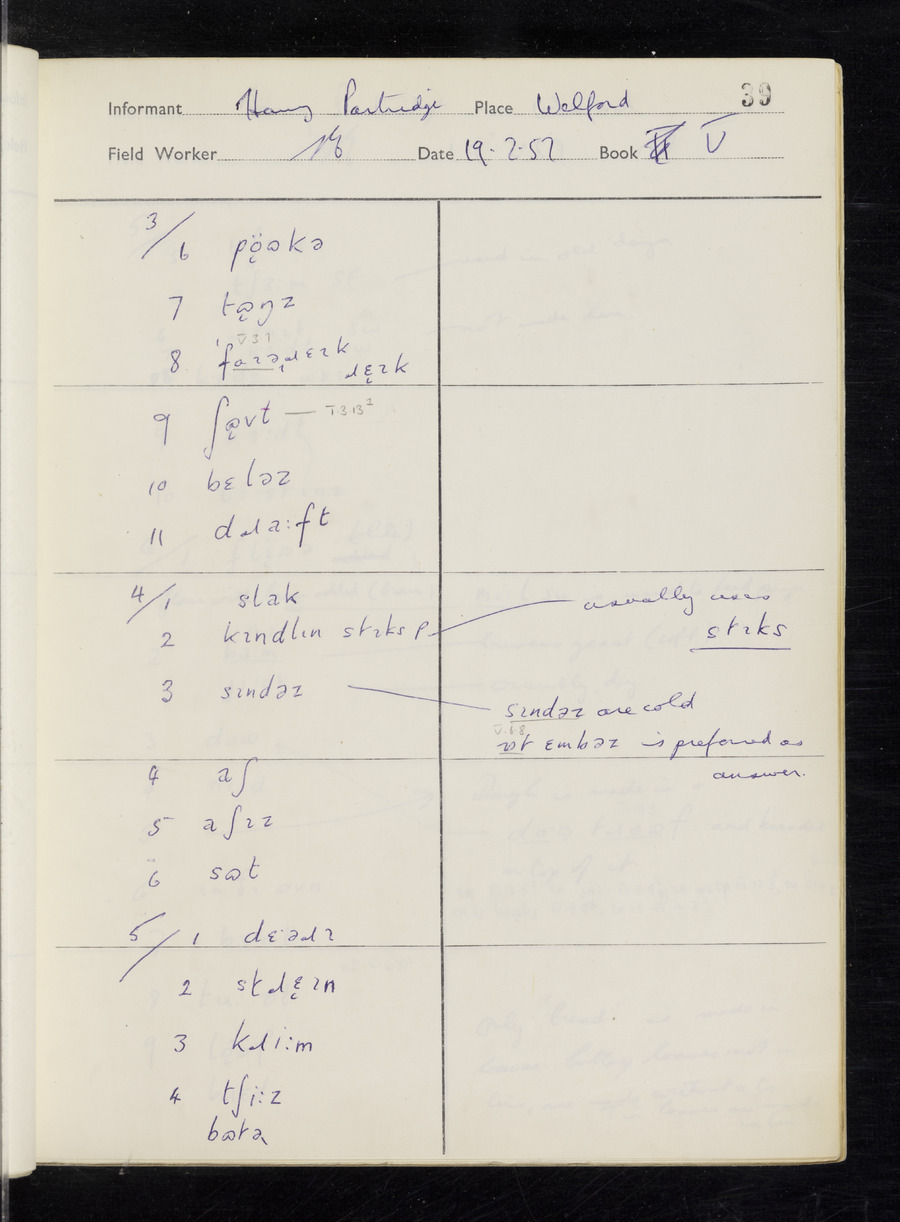 39
Informant Harry Partridge Place Welford
Field Worker
Date 19.2.57 Book V
3/6 pöɷkə
7 tɷŋz
V 3 1
8 ˈfaɪəɹɛɪk
ɹɛɪk
9 ʃɷvt — I.3.13²
10 bɛləz
11 dɹa:ft
4/1 slak
2 kɪndlɪn stɪks p. usually uses
stɪks
3 sɪndəz
sɪndəz are cold
V.1.8
ɒt ɛmbəz is preferred as
answer.
4 aʃ
5 aʃɪz
6 sɷt
5/1 dɛəɹɪ
2 stɹɛɪn
3 kɹi:m
4 tʃi:z
bɷtə